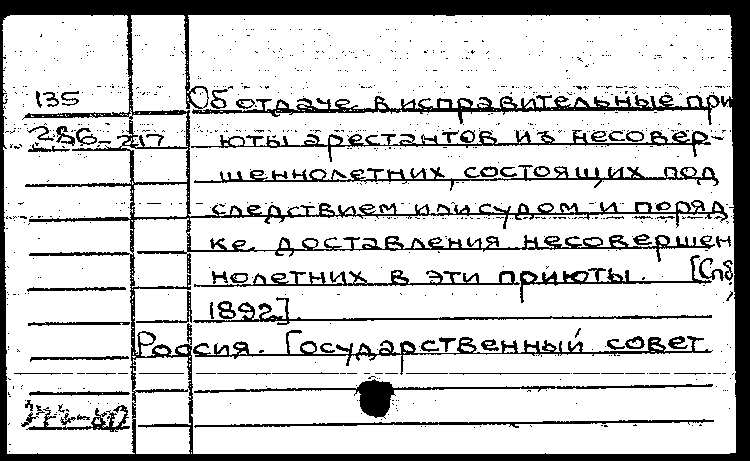 135 Об отдаче в исправительные при
юты арестантов изъ несовер-
шеннолетних, состоящих под
следствием или судом, и поряд
ке доставления несовершен
нолетних в эти приюты. [Спб,
1892].
Россия. Государственный совет.